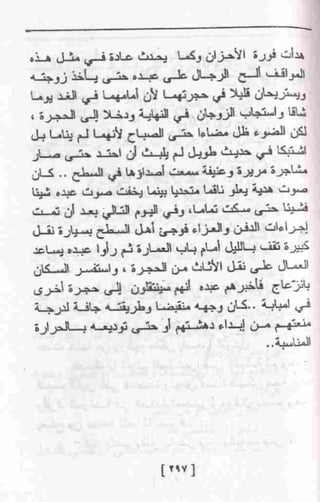 هدأت فورة الأحزان وكما يحدث عادة في مثل هذه
المواقف ألح الرجال على عبده حتى يأخذ زوجته
ويستريحان قليلا في حجرتهما لأن أمامهما في الغد يوما
شاقا واستجاب الزوجان في النهاية ودخلا إلى الحجرة ،
لكن الضوء ظل مضاءا حتى الصباح لأنهما لم يناما بل
اشتبكا في حديث طويل لم يلبث أن احتد حتى صار
مشاجرة مريرة وعنيفة سمعت أصداؤها في السطح .. كان
صوت هدية يعلو ناقما متحديا بينما يخفت صوت عبده شيئا
فشيئا حتى سكت تماما، وفي اليوم التالي بعد أن تمت
إجراءات الدفن والعزاء فوجئ أهل السطح بسيارة نقل
كبيرة تقف بالليل أمام باب العمارة ثم رأوا عبده يساعد
العمال على نقل الأثاث من الحجرة ، واستفسر السكان
بانزعاج فأخبرهم عبده أنهم سينتقلون إلى حجرة أخرى
في امبابة ..كان وجهه منقبضا وطريقته جافة لدرجة
منعتهم من إبداء دهشتهم أو حتى توديعه بالحرارة
المناسبة..
[ ٢٩٧ ]